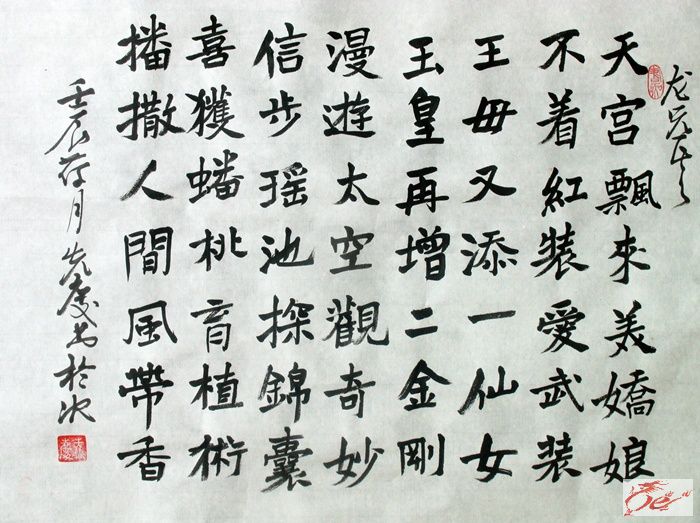 龙兄
天宫飄來美嬌娘
不着紅装愛武装
王母又添一仙女
玉皇再增二金剛
漫遊太空觀奇妙
信步瑶池探錦囊
喜獲蟠桃育植術
播撒人間風帶香
壬辰荷月先慶书於